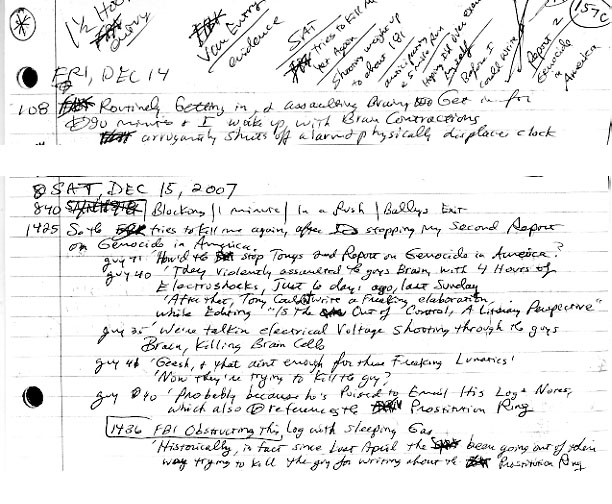 1 1/2 Hour
Query
Van Entry
evidence
SAT
tries to kill me
yet Again
Showing wake up
to about 181
anticipating my
e 5 mile Run
Hoping I'd over exert
myself
Before I
could write
Report
Genocide
in America
157C
FRI, DEC 14
108 Routinely Getting in, & assaulting Brain, Get in for
90 minutes & I wake up with Brain Contractions
arrogantly shuts off alarm & physically displace clock
SAT, DEC 15, 2007
840 Blocking | 1 minute | In a Rush | Ballys Exit
1425 So the tries to kill me again, after I stepping my Second Report
on Genocide in America.
guy 41 How'd the stop Tonys 2nd Report on Genocide in America?
guy 40 'They violently assaulted the guys Brain, with 4 Hours of
Electroshocks, Just 6 days ago, last Sunday
'After that, Tony Couldn't write a Freaking elaboration,
while Editing "Is the Out of Control, A Literary Perspective"
guy 35 'We're talkin electrical Voltage Shooting through the guys
Brain, Killing Brain Cells
guy 46 'Geesh, & that aint enough for these Freaking Lunatics!
'Now they're trying to Kill the guy?
guy 40 'Probably because he's Poised to Email His Log Notes,
which also references the Prostitution Ring
1436 FBI Obstructing this log with Sleeping Gas
'Historically, in fact since last April the been going out of their
way trying to kill the guy for writing about the Prostitution Ring